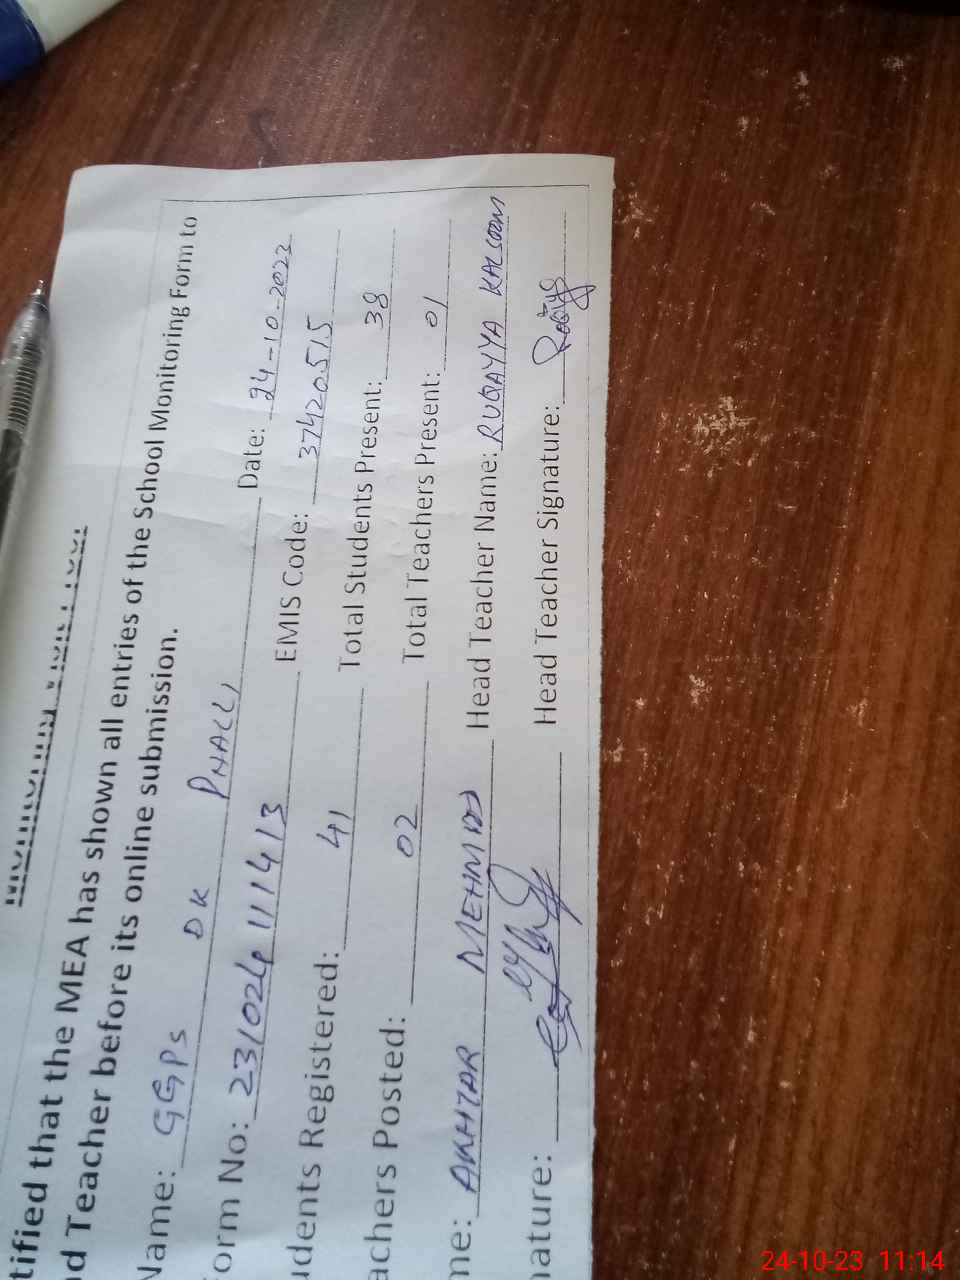 tified that the MEA has shown all entries of the School Monitoring Form to
d Teacher before its online submission.
Name: GGPS DK PHALLI Date: 24-10-2023
orm No: 231024111413 EMIS Code: 37420515
udents Registered: 41 Total Students Present: 38
achers Posted: 02 Total Teachers Present: 01
me: AKHTAR MEHMOOD Head Teacher Name: RUQAYYA KALSOOM
nature: Head Teacher Signature:
24-10-23 11:14